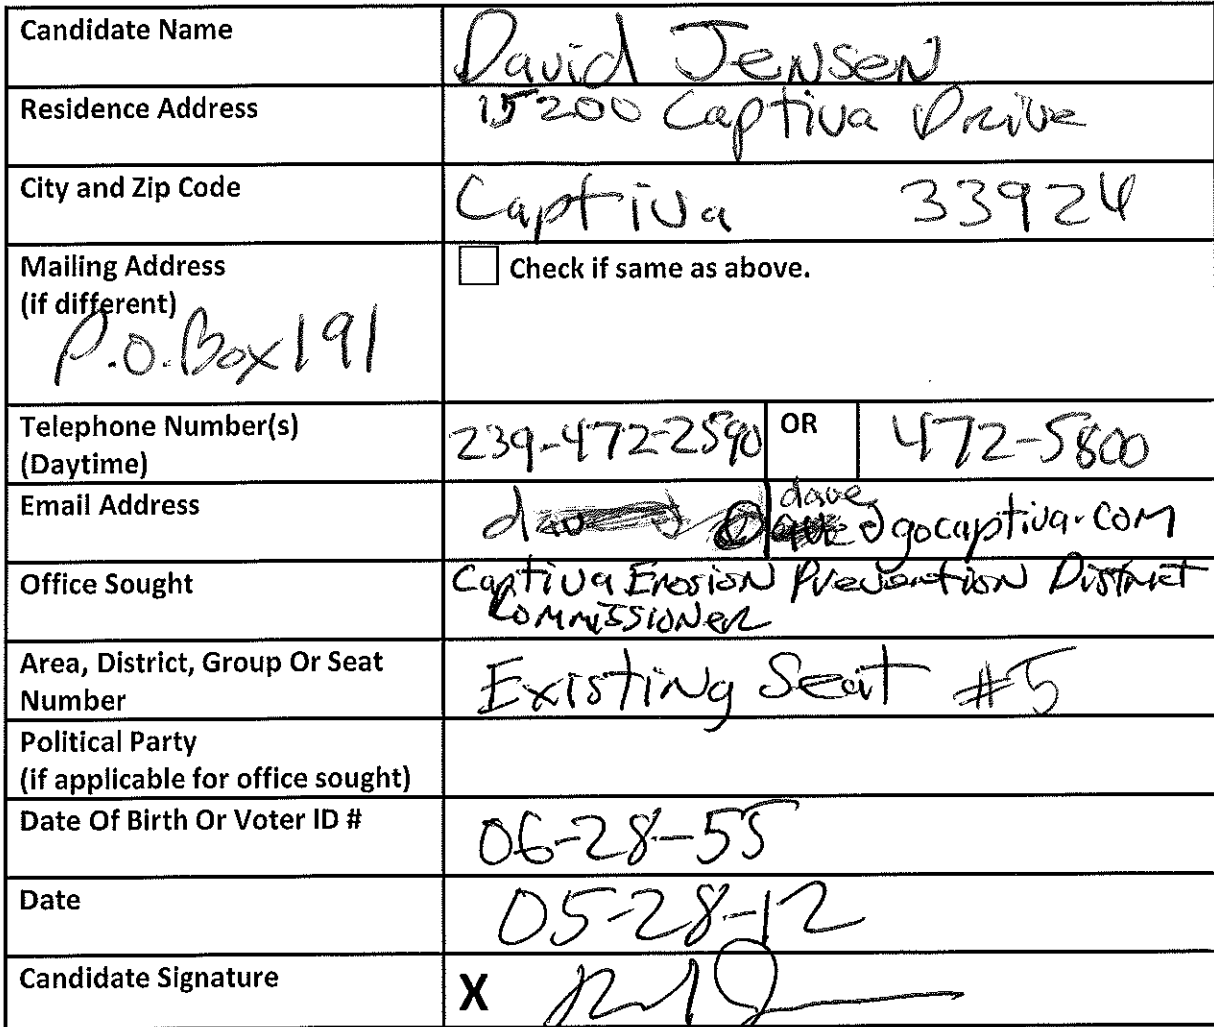 Candidate Name David Jensen
Residence Address 15200 Captiva Drive
City and Zip Code Captiva 33924
Mailing Address
(if different)
P.O. Box 191
Check if same as above.
Telephone Number(s)
(Daytime)
239-472-2590 OR 472-5800
Email Address dave@gocaptiva.com
Office Sought Captiva Erosion Prevention District
Commissioner
Area, District, Group Or Seat
Number
Existing Seat #5
Political Party
(if applicable for office sought)
Date Of Birth Or Voter ID # 06-28-55
Date 05-28-12
Candidate Signature X